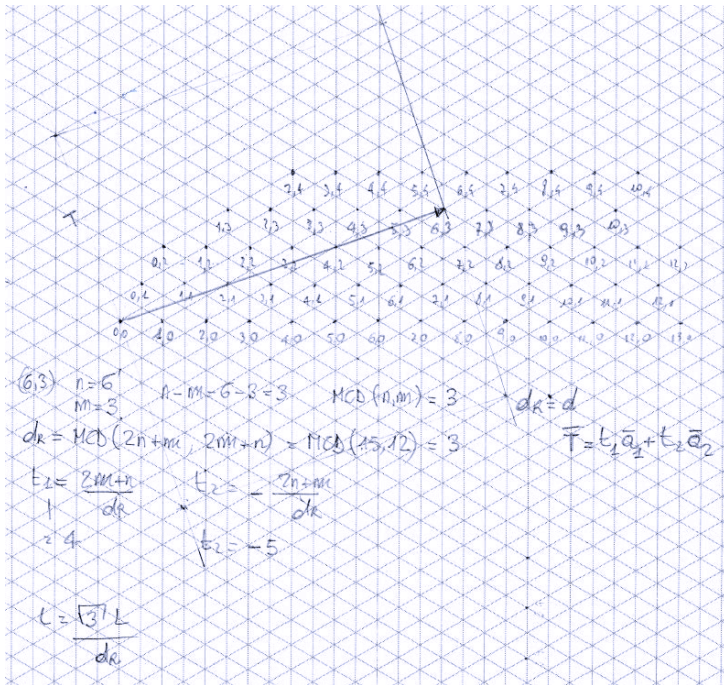 2,4 3,4 4,4 5,4 6,4 7,4 8,4 9,4 10,4
T
1,3 2,3 3,3 4,3 5,3 6,3 7,3 8,3 9,3 10,3
0,2 1,2 2,2 3,2 4,2 5,2 6,2 7,2 8,2 9,2 10,2 11,2 12,2
0,1 1,1 2,1 3,1 4,1 5,1 6,1 7,1 8,1 9,1 10,1 11,1 12,1
0,0 1,0 2,0 3,0 4,0 5,0 6,0 7,0 8,0 9,0 10,0 11,0 12,0 13,0
(6,3) n=6 n-m=6-3=3 MCD(n,m)=3 dR=d
m=3
dR = MCD(2n+m, 2m+n) = MCD(15,12) = 3 T̄=t1ā1+t2ā2
t1= 2m+n / dR t2= - 2n+m / dR
= 4 t2=-5
= √3 L / dR